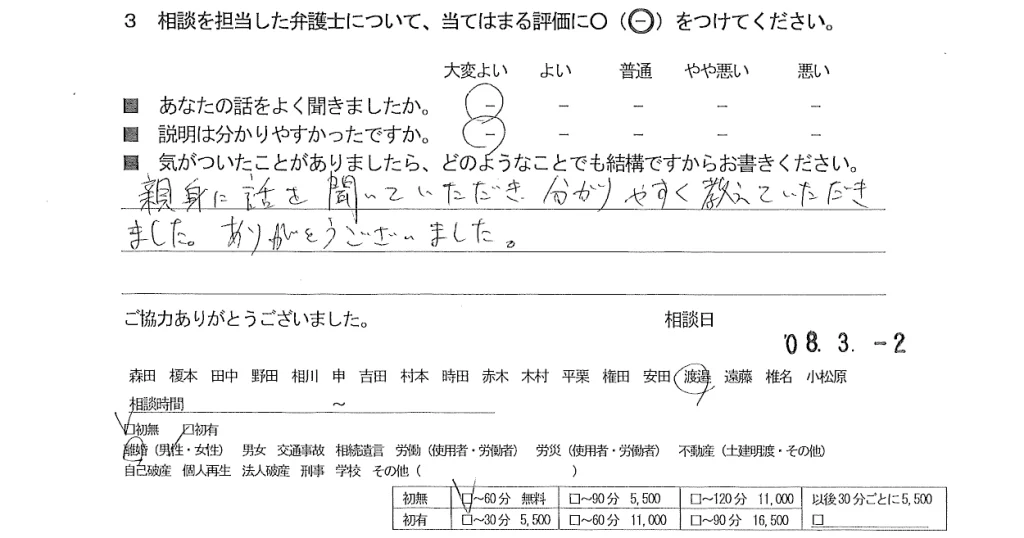 3 相談を担当した弁護士について、当てはまる評価に○（㊀）をつけてください。
大変よい よい 普通 やや悪い 悪い
■ あなたの話をよく聞きましたか。 － － － － －
■ 説明は分かりやすかったですか。 － － － － －
■ 気がついたことがありましたら、どのようなことでも結構ですからお書きください。
親身に話を聞いていただき、分かりやすく教えていただき
ました。ありがとうございました。
ご協力ありがとうございました。 相談日
'08. 3. -2
森田 榎本 田中 野田 相川 申 吉田 村本 時田 赤木 木村 平栗 権田 安田 渡邉 遠藤 椎名 小松原
相談時間 ～
□初無 □初有
離婚（男性・女性） 男女 交通事故 相続遺言 労働（使用者・労働者） 労災（使用者・労働者） 不動産（土建明渡・その他）
自己破産 個人再生 法人破産 刑事 学校 その他（ ）
初無 □～60分 無料 □～90分 5,500 □～120分 11,000 以後30分ごとに5,500
初有 □～30分 5,500 □～60分 11,000 □～90分 16,500 □